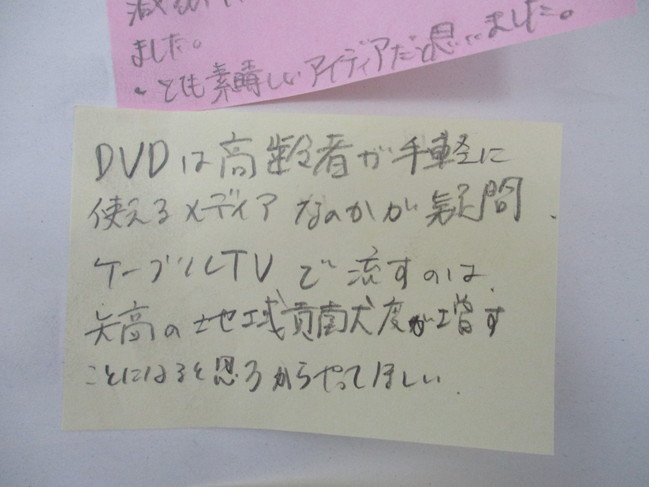 ました。
・とても素晴しいアイディアだと思いました。
DVDは高齢者が手軽に
使えるメディアなのかが疑問.
ケーブルTVで流すのは、
矢高の地域貢献度が増す
ことになると思うからやってほしい.